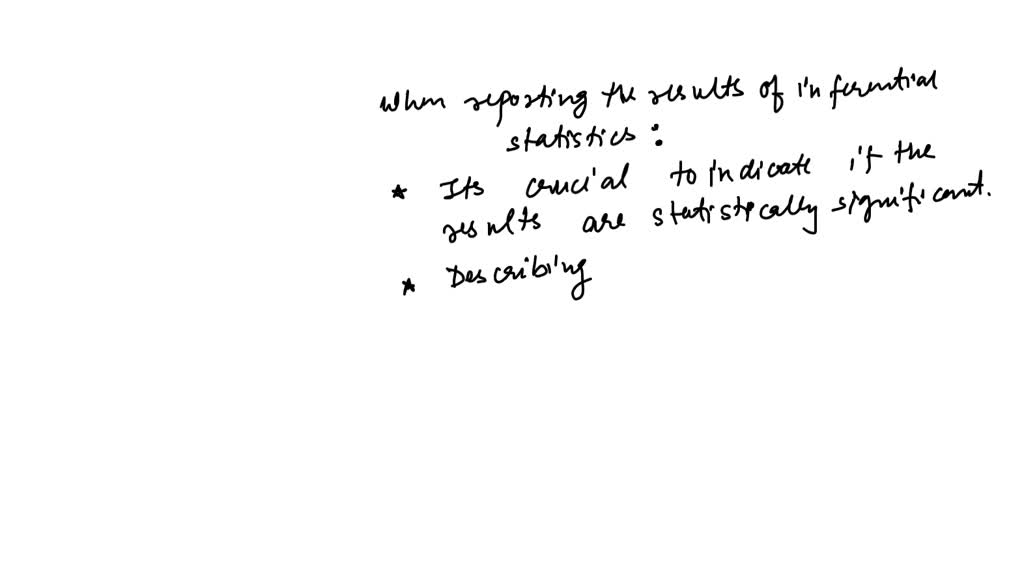 When reporting the results of inferential
statistics :
* Its crucial to indicate if the
results are statistically significant.
* Describing